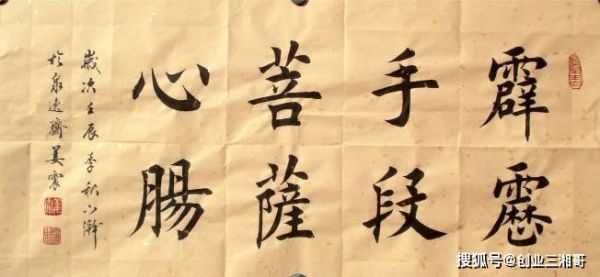 霹靂
手段
菩薩
心腸
歲次壬辰季秋下澣
於泉遠齋姜震
搜狐号@创业三相哥